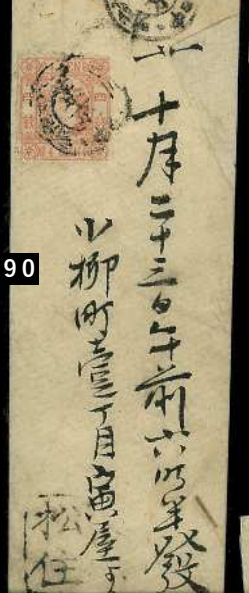 十月二十三日午前六時半發
小柳町壹丁目寅屋
松住
90